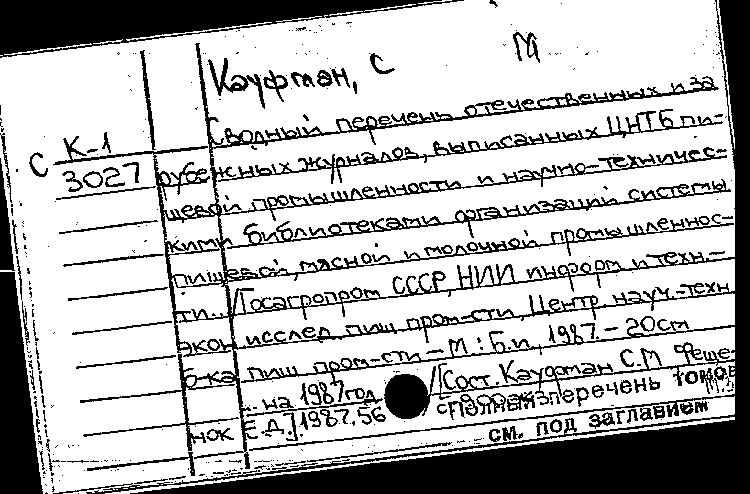 Кауфман, С М
С К-1
3027
Сводный перечень отечественных и за
рубежных журналов, выписанных ЦНТБ пи-
щевой промышленности и научно-техничес-
кими библиотеками организаций системы
пищевой, мясной и молочной промышленнос-
ти.. /Госагропром СССР, НИИ информ и техн.-
экон исслед. пищ пром-сти, Центр. науч.-техн
б-ка пищ пром-сти – М : Б.и, 1987. – 20см
... на 1987год. /Сост. Кауфман С.М Феще-
нок Е.Д./ 1987. 56 с
Полный перечень томов
см. под заглавием